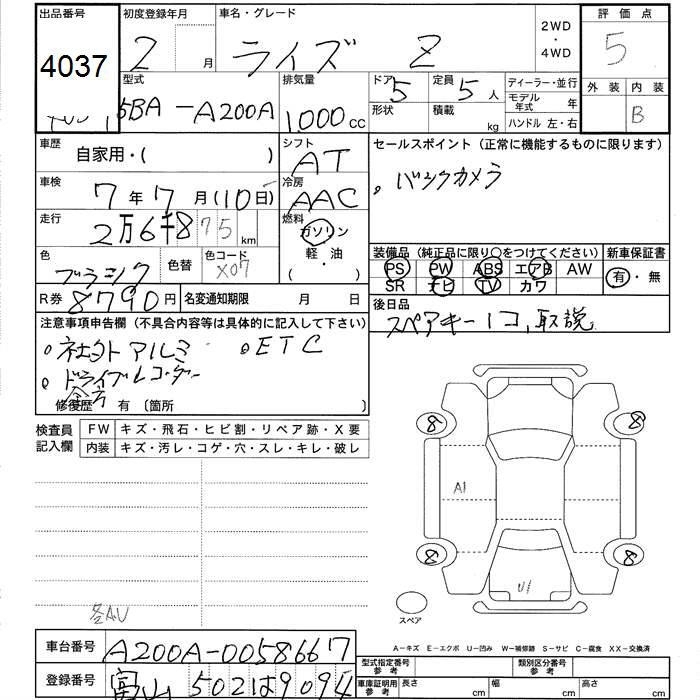 出品番号 初度登録年月 車名・グレード 2WD・4WD 評価点
4037 2月 ライズ Z 5
型式 排気量 ドア 5 定員 5人 ディーラー・並行 外装 内装
5BA-A200A 1,000cc 形状 積載 kg モデル年式 年 B
ハンドル 左・右
車歴 自家用・( ) シフト AT セールスポイント(正常に機能するものに限ります)
車検 7年7月(10日) 冷房 AAC 。バックカメラ
走行 2万6千875km 燃料 ガソリン・軽・油( )
色 ブラック 色替 色コード X07
装備品(純正品に限り○をつけてください) 新車保証書
PS PW ABS エアB AW 有・無
SR ナビ TV カワ
R券 8790円 名変通知期限 月 日
後日品
スペアキー1コ、取説
注意事項申告欄(不具合内容等は具体的に記入して下さい)
。社外アルミ 。ETC
。ドライブレコーダー
修復歴 有 〔箇所 〕
検査員記入欄 FW キズ・飛石・ヒビ割・リペア跡・X要
内装 キズ・汚レ・コゲ・穴・スレ・キレ・破レ
8 8
A1
8 8
U1
スペア
A-キズ E-エクボ U-凹み W-補修跡 S-サビ C-腐食 XX-交換済
車台番号 A200A-0058667
登録番号 富山 502は9094
型式指定番号 参考 類別区分番号 参考
車庫証明用 参考 長さ cm 幅 cm 高さ cm